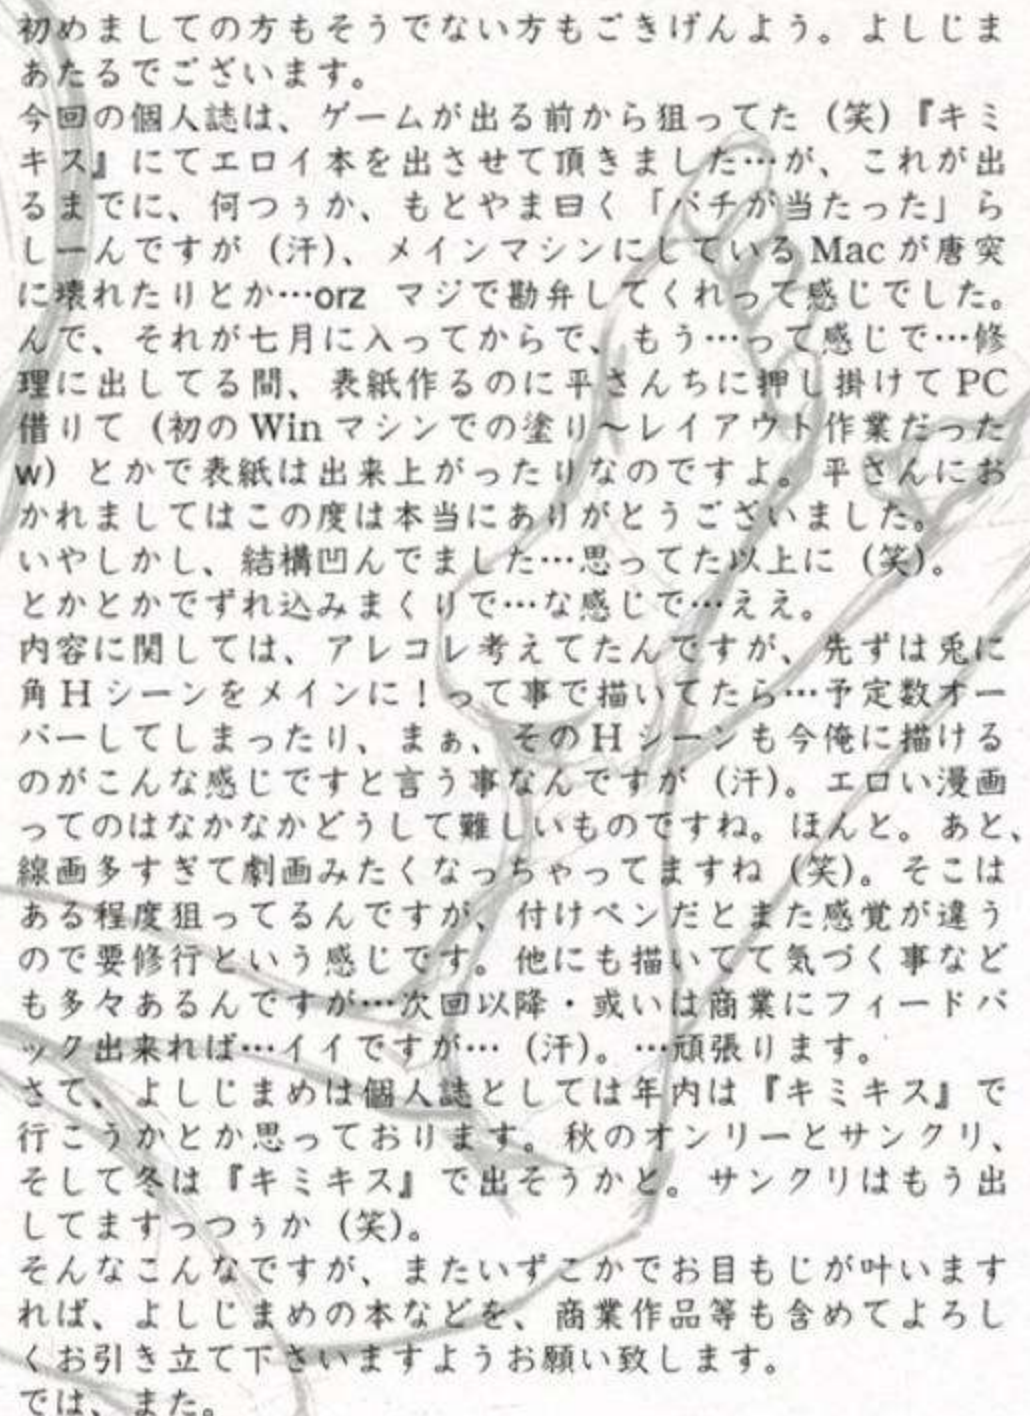 初めましての方もそうでない方もごきげんよう。よしじま
あたるでございます。
今回の個人誌は、ゲームが出る前から狙ってた（笑）『キミ
キス』にてエロイ本を出させて頂きました…が、これが出
るまでに、何つぅか、もとやま曰く「バチが当たった」ら
しーんですが（汗）、メインマシンにしているMacが唐突
に壊れたりとか…orz マジで勘弁してくれって感じでした。
んで、それが七月に入ってからで、もう…って感じで…修
理に出してる間、表紙作るのに平さんちに押し掛けてPC
借りて（初のWinマシンでの塗り～レイアウト作業だった
w）とかで表紙は出来上がったりなのですよ。平さんにお
かれましてはこの度は本当にありがとうございました。
いやしかし、結構凹んでました…思ってた以上に（笑）。
とかとかでずれ込みまくりで…な感じで…ええ。
内容に関しては、アレコレ考えてたんですが、先ずは兎に
角Hシーンをメインに！って事で描いてたら…予定数オー
バーしてしまったり、まぁ、そのHシーンも今俺に描ける
のがこんな感じですと言う事なんですが（汗）。エロい漫画
ってのはなかなかどうして難しいものですね。ほんと。あと、
線画多すぎて劇画みたくなっちゃってますね（笑）。そこは
ある程度狙ってるんですが、付けペンだとまた感覚が違う
ので要修行という感じです。他にも描いてて気づく事など
も多々あるんですが…次回以降・或いは商業にフィードバ
ック出来れば…イイですが…（汗）。…頑張ります。
さて、よしじまめは個人誌としては年内は『キミキス』で
行こうかとか思っております。秋のオンリーとサンクリ、
そして冬は『キミキス』で出そうかと。サンクリはもう出
してますっつぅか（笑）。
そんなこんなですが、またいずこかでお目もじが叶います
れば、よしじまめの本などを、商業作品等も含めてよろし
くお引き立て下さいますようお願い致します。
では、また。